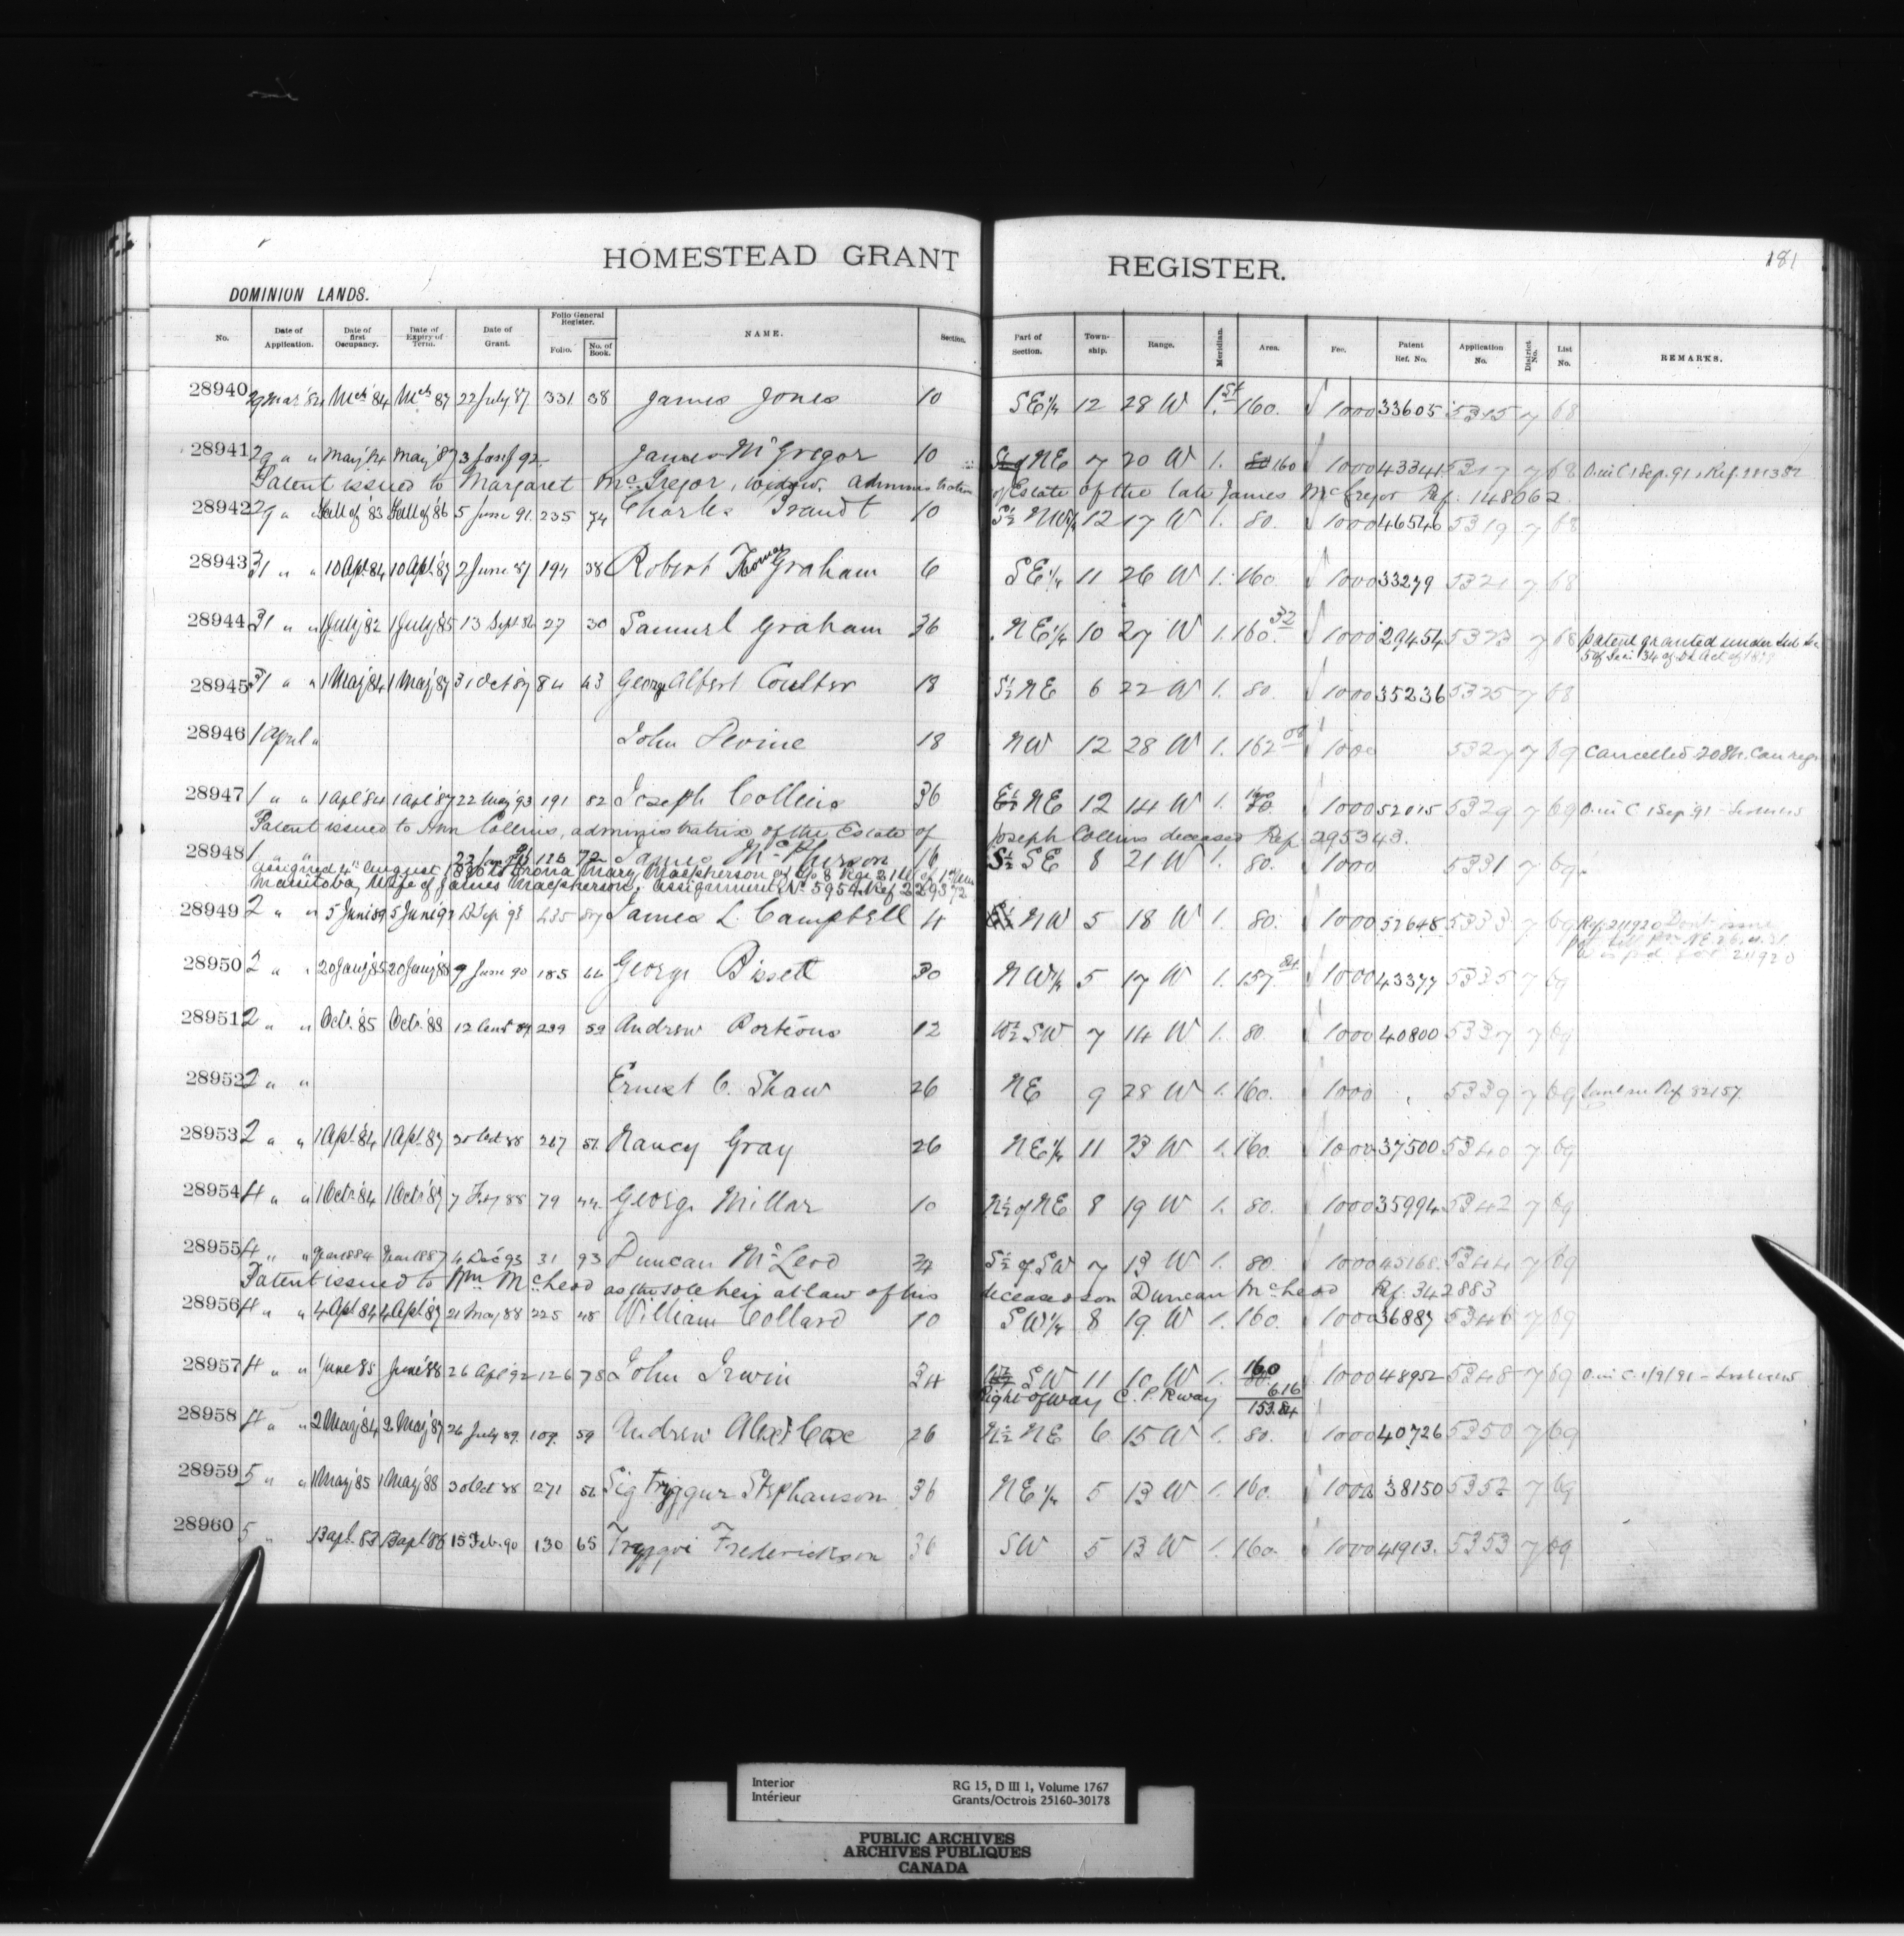 181
HOMESTEAD GRANT REGISTER.
DOMINION LANDS.
No. Date of Application. Date of first Occupancy. Date of Expiry of Term. Date of Grant. Folio General Register. Folio. No. of Book. NAME. Section. Part of Section. Township. Range. Meridian. Area. Fee. Patent Ref. No. Application No. District No. List No. REMARKS.
28940 29 Mar '84 Mch '84 Mch 87 22 July 87 331 38 James Jones 10 SE¼ 12 28 W 1st 160. 1000 33605 5315 7 68
28941 29 " " May '84 May '87 3 92 James McGregor 10 NE 7 20 W 1. 160 1000 43341 5317 7 68 O in C 1 Sep. 91
Patent issued to Margaret McGregor, widow, administration of Estate of the late James McGregor Ref. 148062
28942 29 " " Fall of '83 Fall of '86 5 June 91. 235 74 Charles Brandt 10 S½ NW¼ 12 17 W 1. 80. 1000 46546 5319 7 68
28943 31 " " 10 Apl '84 10 Apl '87 2 June 87 194 38 Robert Thomas Graham 6 SE¼ 11 26 W 1. 160 1000 33279 5321 7 68
28944 31 " " 1 July '82 1 July '85 13 Sept 86 27 30 Samuel Graham 36 NE¼ 10 27 W 1. 160.32 1000 29454 5323 7 68 patent granted under Sub Sec
5 of Sec. 34 of DL Act of
28945 31 " " 1 May '84 1 May '87 31 Oct 87 84 43 George Albert Coulter 18 S½ NE 6 22 W 1. 80. 1000 35236 5325 7 68
28946 1 April " John Devine 18 NW 12 28 W 1. 162 1000 5327 7 69 Cancelled 2084. Can regr
28947 1 " " 1 Apl '84 1 Apl '87 22 May '93 191 82 Joseph Collins 36 E½ NE 12 14 W 1. 160 80. 1000 52015 5329 7 69 O in C 1 Sep '91
Patent issued to Ann Collins, administratrix of the Estate of Joseph Collins deceased Ref. 295343.
28948 1 " " 22 125 72 James McPherson 16 S½ SE 8 21 W 1. 80. 1000 5331 7 69
assigned 4th August Mary Macpherson of Tp 8 Rge 21 W of 1st Mer
Manitoba, Wife of James Macpherson, assignment No 5954. Ref 229372
28949 2 " " 5 June 89 5 June 92 12 Sep. 93 235 87 James L. Campbell 4 NW 5 18 W 1. 80. 1000 52648 5333 7 69 Ref. 211920 Don't issue
28950 2 " " 20 Jany '85 20 Jany '88 9 June 90 185 66 George Bissett 30 NW¼ 5 17 W 1. 157.84 1000 43377 5335 7 69
28951 2 " " Octr. '85 Octr. '88 12 89 239 59 Andrew Porteous 12 W½ SW 7 14 W 1. 80. 1000 40800 5337 7 69
28952 2 " " Ernest C. Shaw 26 NE 9 28 W 1. 160. 1000 5339 7 69 Ref 82157
28953 2 " " 1 Apl. '84 1 Apl. '87 30 Oct 88 267 51 Nancy Gray 26 NE¼ 11 23 W 1. 160. 1000 37500 5340 7 69
28954 4 " " 1 Octr '84 1 Octr '87 7 Feby 88 79 44 George Millar 10 N½ of NE 8 19 W 1. 80. 1000 35994 5342 7 69
28955 4 " " Year 1884 Year 1887 4 Dec 93 31 93 Duncan McLeod 24 S½ of SW 7 13 W 1. 80. 1000 45168. 5344 7 69
Patent issued to Wm McLeod as the sole heir at law of his deceased son Duncan McLeod Ref. 342883
28956 4 " " 4 Apl 84 4 Apl '87 21 May 88 225 48 William Collard 10 SW¼ 8 19 W 1. 160. 1000 36887 5346 7 69
28957 4 " " June 85 June '88 26 Apl '92 126 78 John Irwin 34 W½ SW 11 10 W 1. 160 80. 1000 48952 5348 7 69 O in C. 1/9/91
Right of way C. P. Rway 6.16
153.84
28958 4 " " 2 May '84 2 May '87 26 July 89. 107. 59 Andrew Alexr Cox 26 N½ NE 6 15 W 1. 80. 1000 40726 5350 7 69
28959 5 " " 1 May '85 1 May '88 30 Oct 88 271 51 Sigtryggur Stephanson 36 NE¼ 5 13 W 1. 160. 1000 38150 5352 7 69
28960 5 " 13 apl. 83 13 apl 86 15 Feb. 90 130 65 Tryggvi Frederickson 36 SW 5 13 W 1. 160. 1000 41913. 5353 7 69
Interior RG 15, D III 1, Volume 1767
Intérieur Grants/Octrois 25160-30178
PUBLIC ARCHIVES
ARCHIVES PUBLIQUES
CANADA